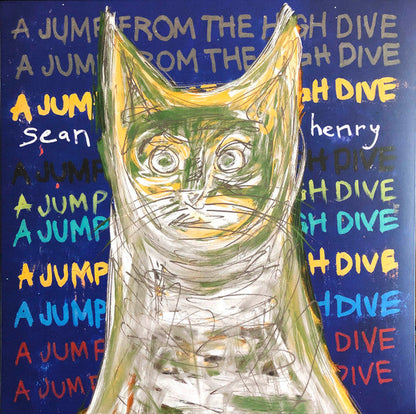 A JUMP FROM THE HIGH DIVE
A JUMP FROM THE HIGH DIVE
A JUMP GH DIVE
sean henry
A JUMP H DIVE
A JUMP GH DIVE
A JUMP H DIVE
A JUMP H DIVE
A JUMP H DIVE
A JUMP DIVE
A JUMP DIVE